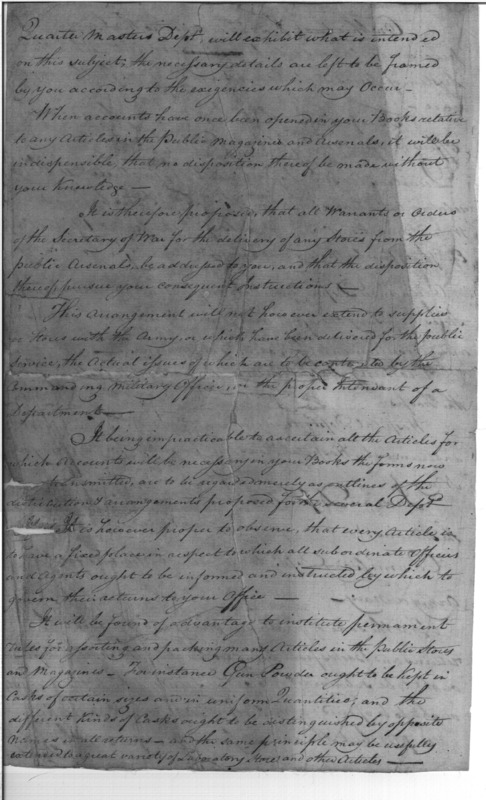 Quarter Masters Dept. will exhibit what is intended
on this subject; the necessary details are left to be framed
by you according to the exigencies which may Occur –
When accounts have once been opened in your Books relative
to any Articles in the Public Magazines and Arsenals, it will be
indispensible, that no disposition thereof be made without
your Knowledge –
It is therefore proposed, that all Warrants or Orders
of the Secretary of War for the delivery of any Stores from the
public Arsenals, be addressed to you, and that the disposition
thereof pursue your consequent Instructions –
This Arrangement will not however extend to supplies
or Stores with the Army, or which have been delivered for the public
Service, the Actual issues of which are to be by the
Commanding Military Officer, or the proper Intendant of a
Department –
It being impracticable to ascertain all the Articles for
which Accounts will be necessary in your Books the forms now
transmitted, are to be regarded merely as outlines of the
distribution & arrangements proposed for the several Dept
It is however proper to observe, that every Article is
to have a fixed place in respect to which all subordinate Officers
and Agents ought to be informed and instructed by which to
govern their returns to your Office –
It will be found of advantage to institute permament
rules for assorting and packing many Articles in the public Stores
and Magazines – For instance Gun Powder ought to be Kept in
Casks of certain sizes and in uniform Quantities; and the
different kinds of Casks ought to be distinguished by opposite
names in all returns – and the same principle may be usefully
extended to a great variety of Laboratory Stores and other Articles –